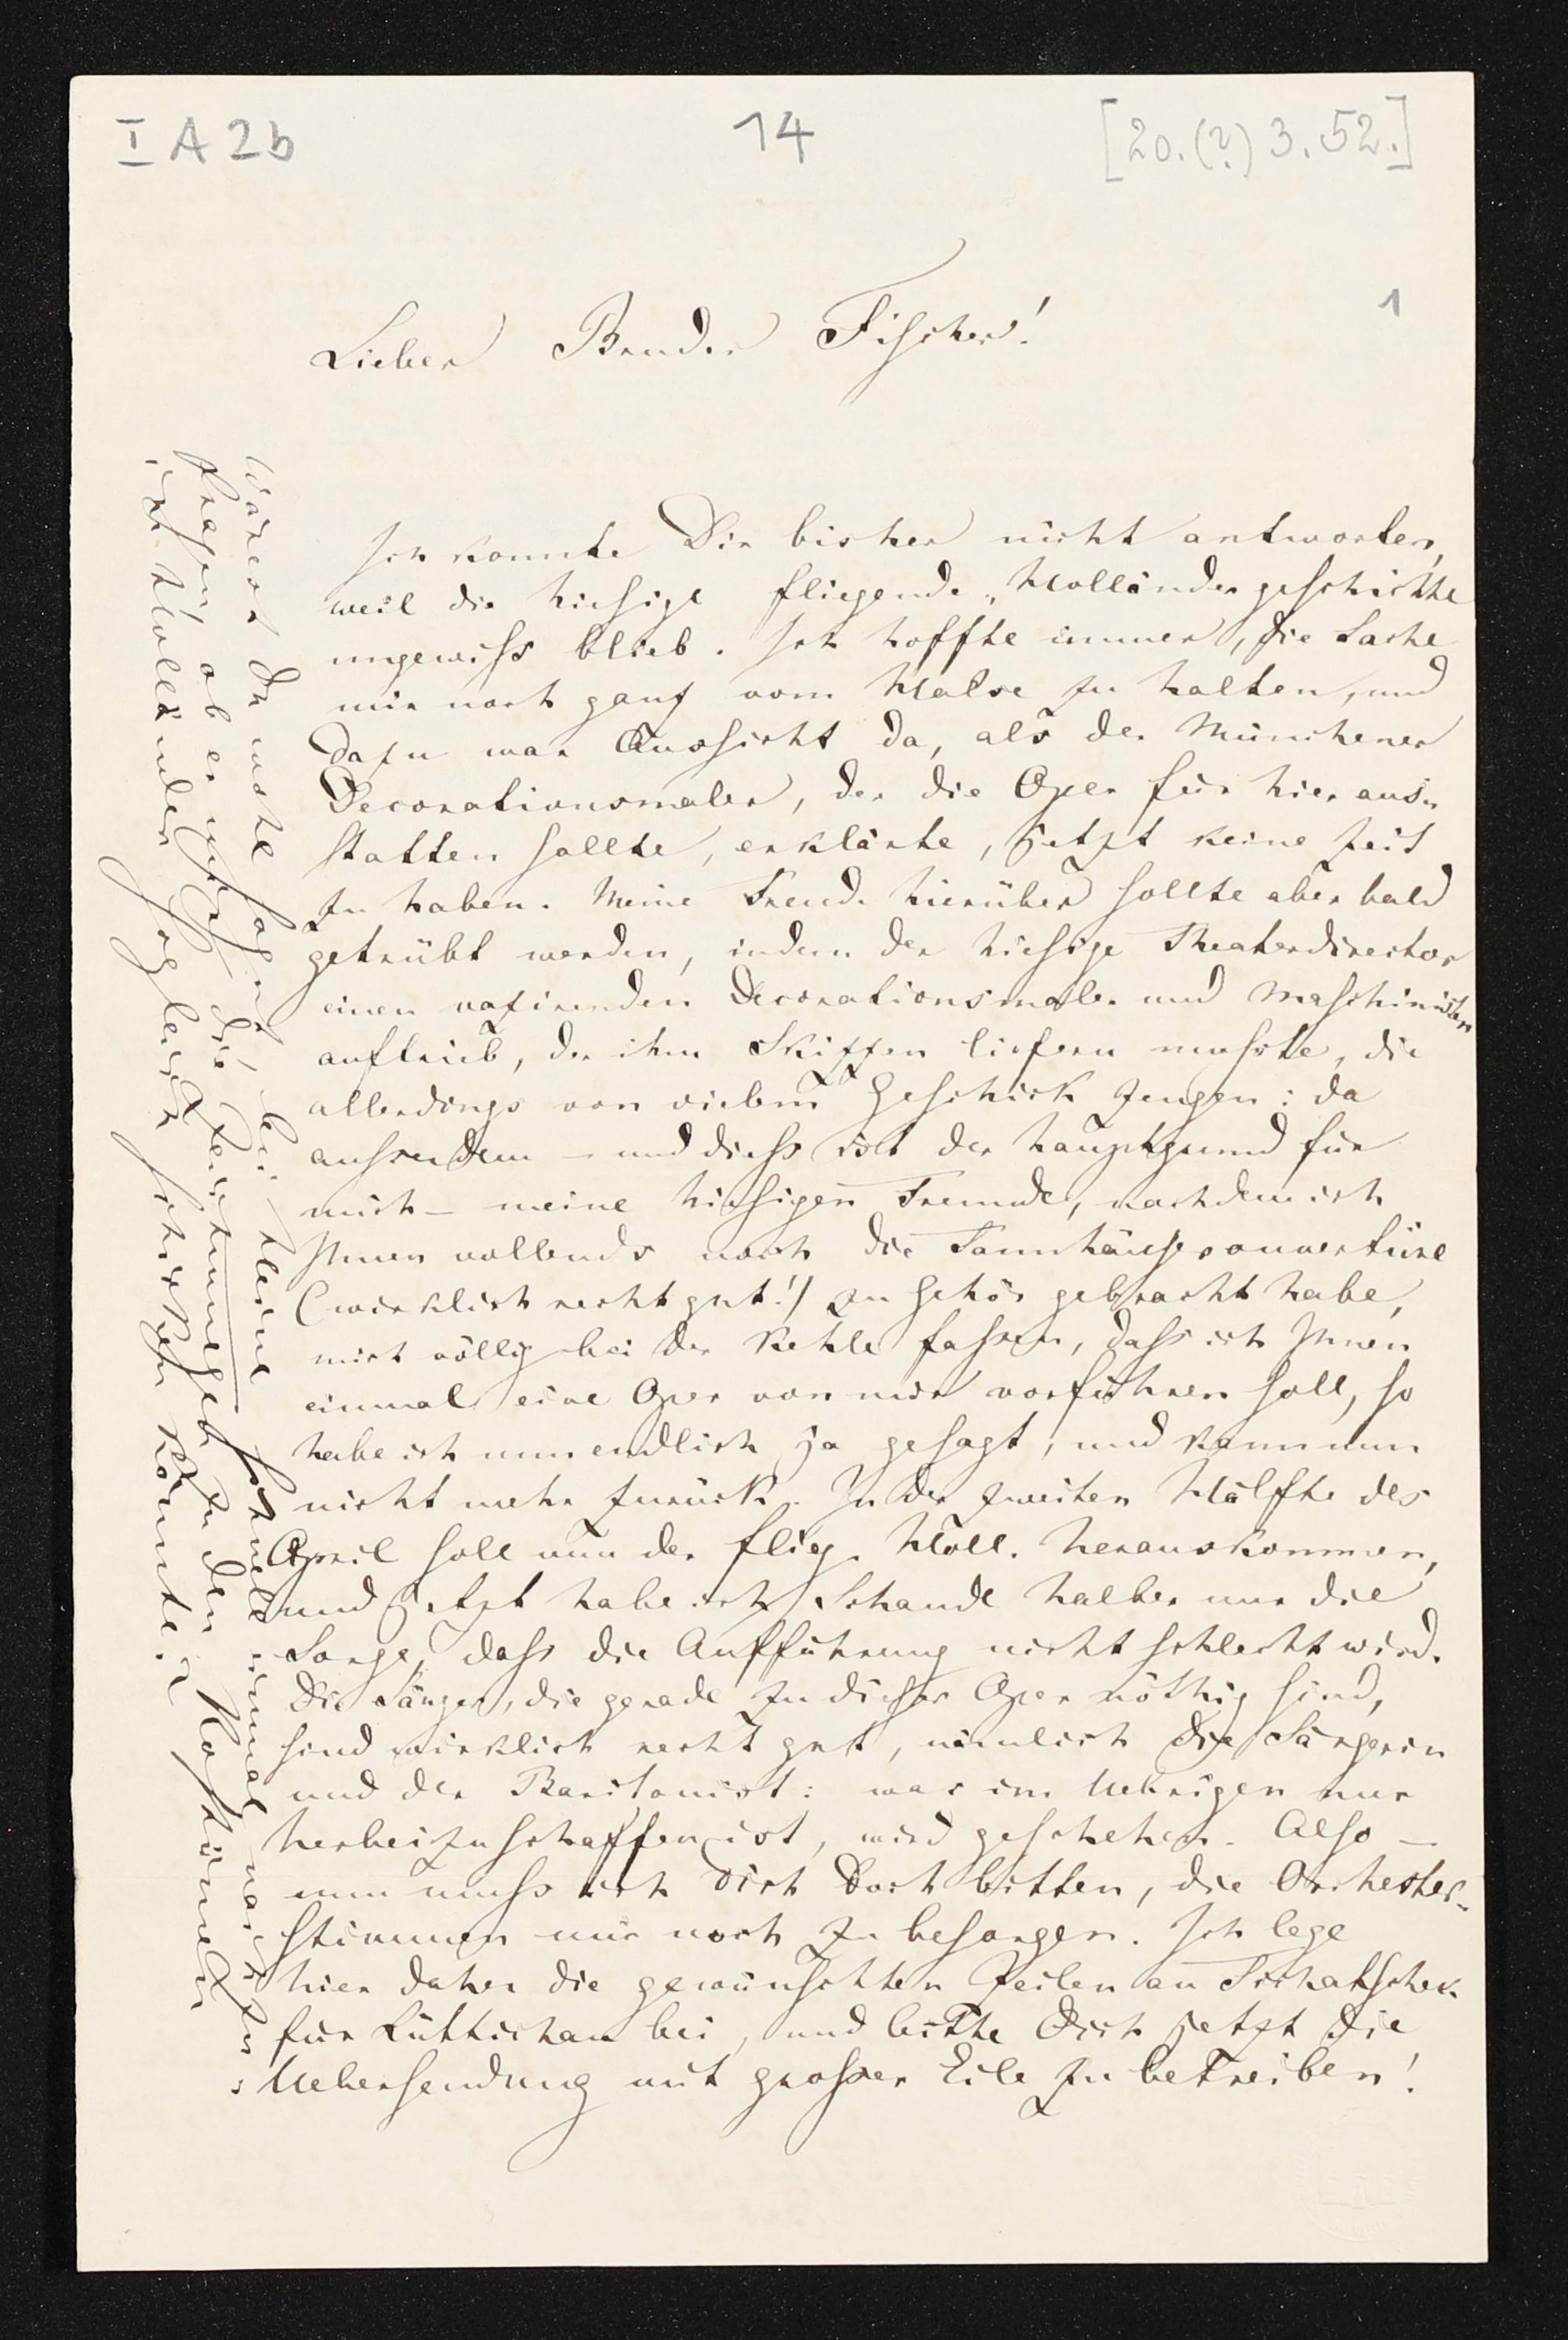 I A 2b
14
[20.(?) 3. 52.]
1
Lieber Bruder Fischer!
Ich konnte Dir bisher nicht antworten,
weil die hiesige fliegende „Holländergeschichte
ungewiss blieb. Ich hoffte immer, die Sache
mir noch ganz vom Halse zu halten, und
dazu war Aussicht da, als der Münchener
Decorationsmaler, der die Oper für hier aus-
statten sollte, erklärte, jetzt keine Zeit
zu haben. Meine Freude hierüber sollte aber bald
getrübt werden, indem der hiesige Theaterdirector
einen vazirenden Decorationsmaler und Maschinisten
auftrieb, der ihm Skizzen liefern musste, die
allerdings von vielem Geschick zeugen: da
ausserdem – und diess ist der Hauptgrund für
mich – meine hiesigen Freunde, nachdem ich
Ihnen vollends noch die Tannhäuserouvertüre
(wirklich recht gut!) zu Gehör gebracht habe,
mich völlig bei der Kehle fassen, dass ich Ihnen
einmal eine Oper von mir vorführen soll, so
habe ich nun endlich ja gesagt, und kann nun
nicht mehr zurück. In der zweiten Hälfte des
April soll nun der flieg. Holl. herauskommen,
und jetzt habe ich Schande halber nur die
Sorge, dass die Aufführung nicht schlecht wird.
Die Sänger, die gerade zu dieser Oper nöthig sind,
sind wirklich recht gut, nämlich die Sängerin
und der Baritonist: was im Uebrigen nur
herbeizuschaffen ist, wird geschehen. Also –
nun muss ich Dich doch bitten, die Orchester-
stimmen mir noch zu besorgen. Ich lege
hier daher die gewünschten Zeilen an Tichatschek
für Lüttichau bei, und bitte Dich jetzt die
Uebersendung mit grosser Eile zu betreiben!
Wärest Du wohl bei Heine schnell einmal nach zu
fragen, ob er mir die Zeichnungen zu den Kostümen
im Holländer sogleich schicken könnte?